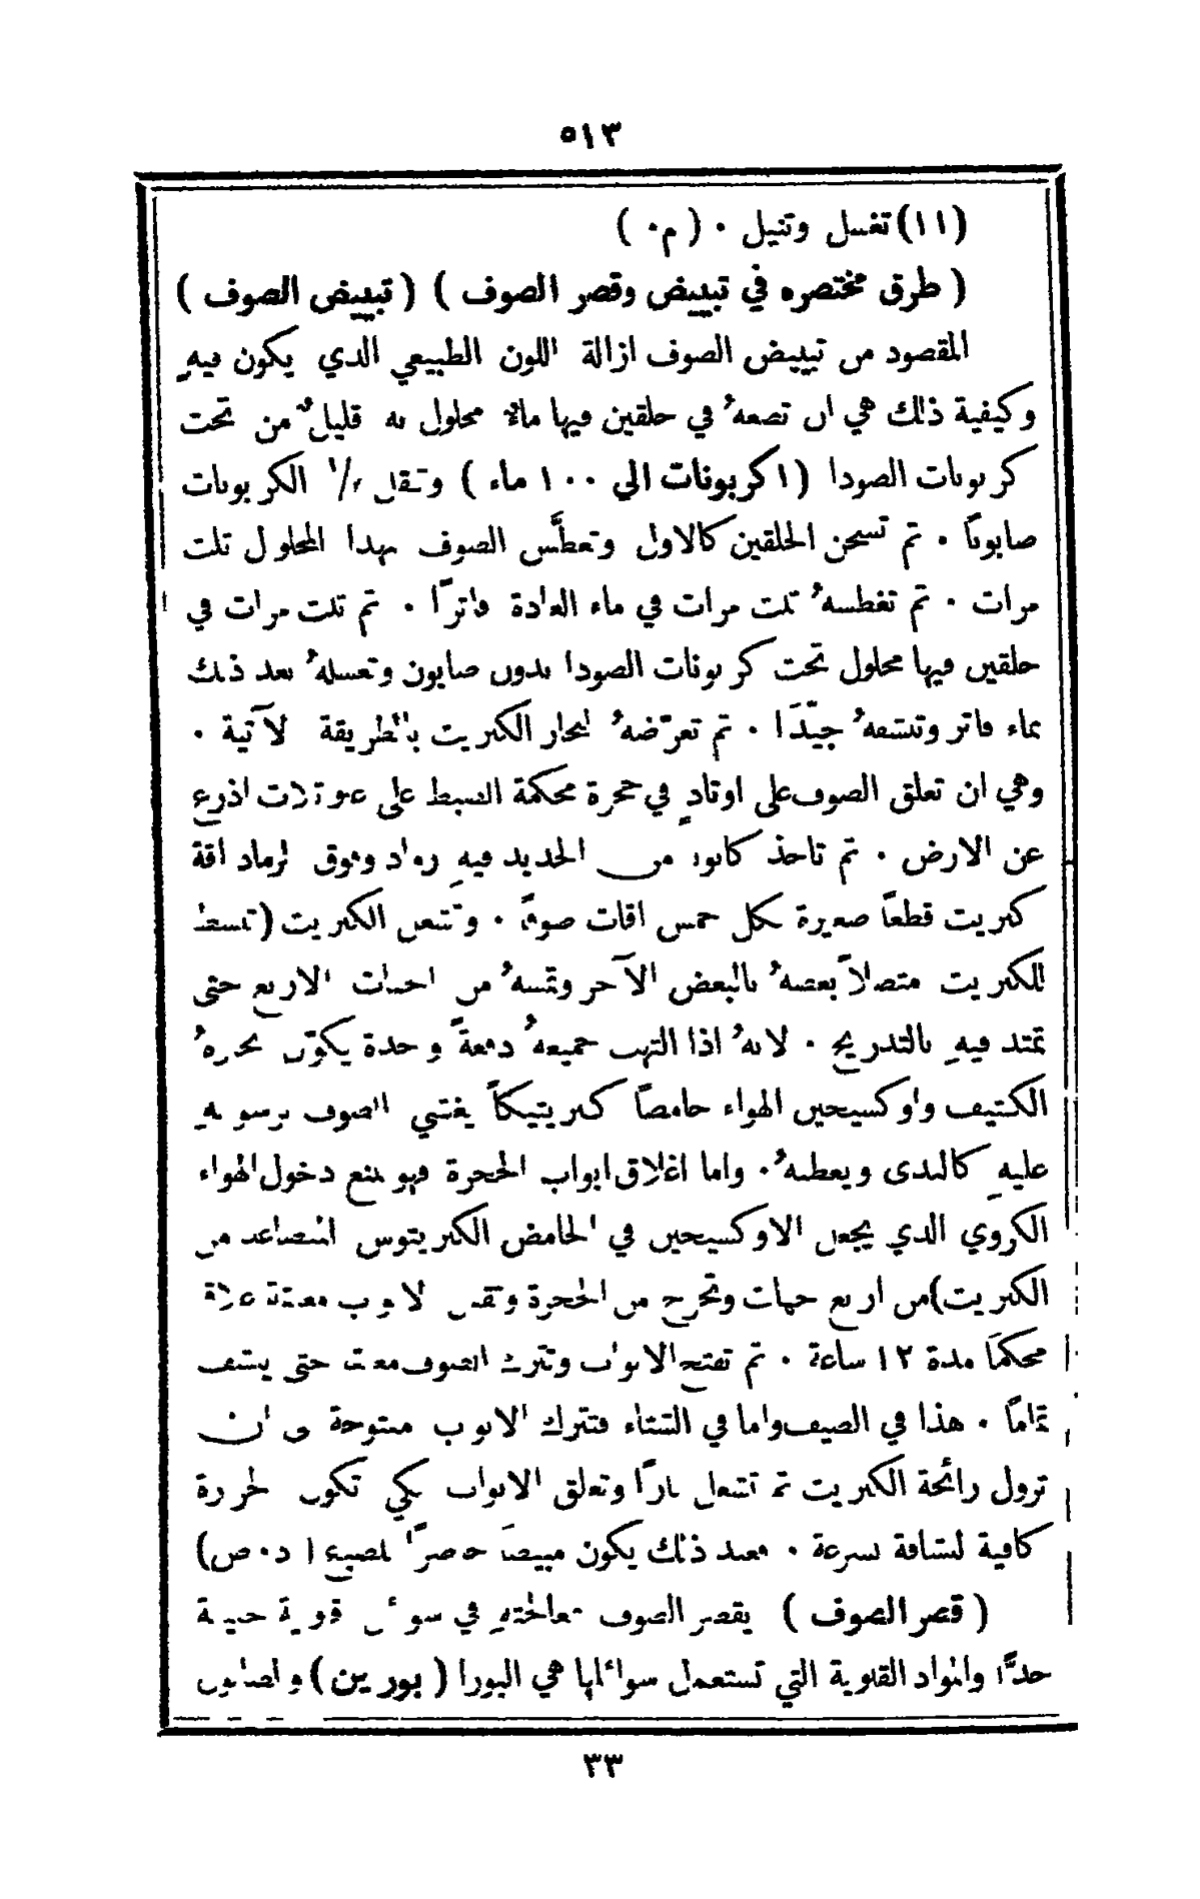 ٥١٣
(١١) تغسل وتنيل ٠ (م٠)
( طرق مختصره في تبييض وقصر الصوف ) ( تبييض الصوف )
المقصود من تبييض الصوف ازالة اللون الطبيعي الذي يكون فيهِ
وكيفية ذلك هي ان تضعهُ في حلقين فيها ماء محلول به قليلٌ من تحت
كربونات الصودا (١ كربونات الى ١٠٠ ماء ) وتقل الكربونات
صابونًا ٠ ثم تسخن الحلقين كالاول وتغطَّس الصوف بهذا المحلول ثلث
مرات ٠ ثم تغطسهُ ثلث مرات في ماء العادة فاترًا ٠ ثم ثلث مرات في
حلقين فيها محلول تحت كربونات الصودا بدون صابون وتغسلهُ بعد ذلك
بماء فاتر وتنشفهُ جيّدًا ٠ ثم تعرّضهُ لبخار الكبريت بالطريقة الآتية ٠
وهي ان تعلق الصوف على اوتادٍ في حجرة محكمة الضبط على علو ثلاث اذرع
عن الارض ٠ ثم تاخذ كانون من الحديد فيهِ رماد وفوق الرماد اقة
كبريت قطعًا صغيرة لكل خمس اقات صوف ٠ وتشعل الكبريت (تبسط
الكبريت متصلاً بعضهُ بالبعض الآخر وتمسهُ من الجهات الاربع حتى
تمتد فيهِ بالتدريج ٠ لانهُ اذا التهب جميعهُ دفعةً واحدة يكوّن بخارهُ
الكثيف واوكسيجين الهواء حامضًا كبريتيكاً يغشي الصوف برسوبهِ
عليهِ كالندى ويعطبهُ ٠ واما اغلاق ابواب الحجرة فهو لمنع دخول الهواء
الكروي الذي يجعل الاوكسيجين في الحامض الكبريتوس المتصاعد من
الكبريت) من اربع جهات وتخرج من الحجرة وتقفل الابواب
محكمًا مدة ١٢ ساعة ٠ ثم تفتح الابواب وتترك الصوف معلق حتى ينشف
تمامًا ٠ هذا في الصيف واما في الشتاء فتترك الابواب مفتوحة الى ان
تزول رائحة الكبريت ثم تشعل نارًا وتغلق الابواب لكي تكون الحرارة
كافية لنشافة بسرعة ٠ فبعد ذلك يكون مبيضًا حاضرًا للصبغ (د٠ص)
( قصر الصوف ) يقصر الصوف بمعالجتهِ في سوائل قلوية خفيفة
جدًّا والمواد القلوية التي تستعمل سوائلها هي البورا ( بورين ) والصابون
٣٣